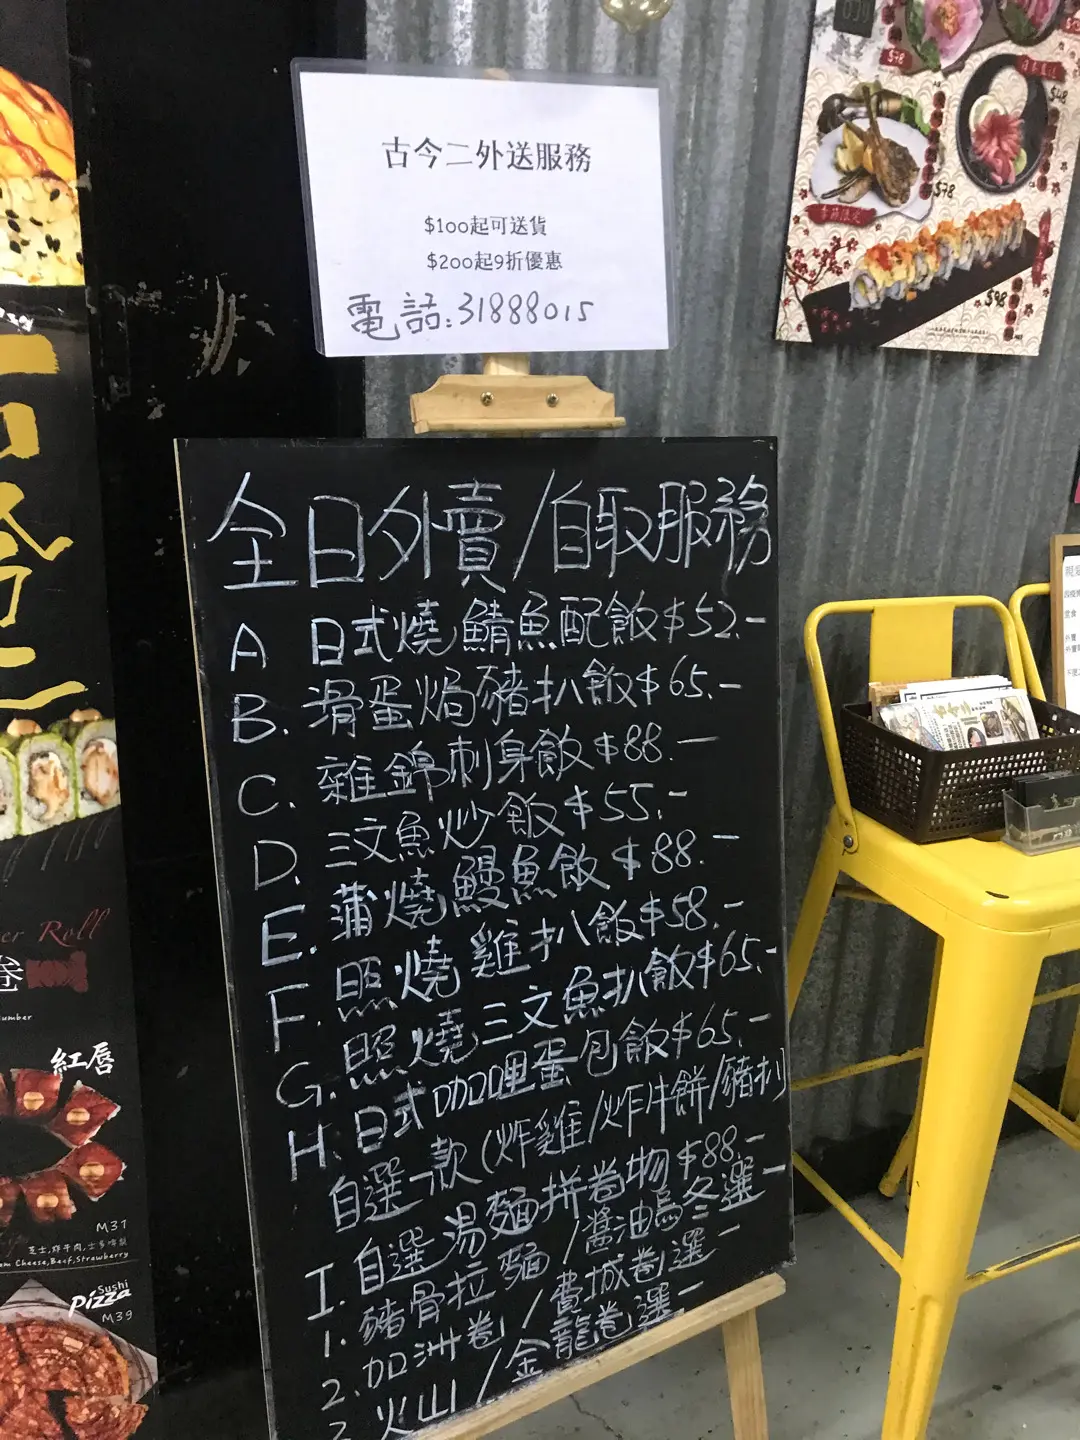 古今二外送服務
$100起可送貨
$200起9折優惠
電話:31888015
全日外賣/自取服務
A 日式燒鯖魚配飯$52.-
B. 滑蛋焗豬扒飯$65.-
C. 雜錦刺身飯$88.-
D. 三文魚炒飯$55.-
E. 蒲燒鰻魚飯$88.-
F. 照燒雞扒飯$58.-
G. 照燒三文魚扒飯$65.-
H. 日式咖哩蛋包飯$65.-
自選一款(炸雞/炸牛餅/豬扒)
I. 自選湯麵拼卷物$88.-
1. 豬骨拉麵/醬油烏冬選一
2. 加洲卷/費城卷選一
3 火山/金龍卷選一
$78
$48
$78
$98
er Roll
卷
umber
紅唇
M31
芝士,炸牛肉,士多啤梨
am Cheese,Beef,Strawberry
Sushi
Pizza
M39